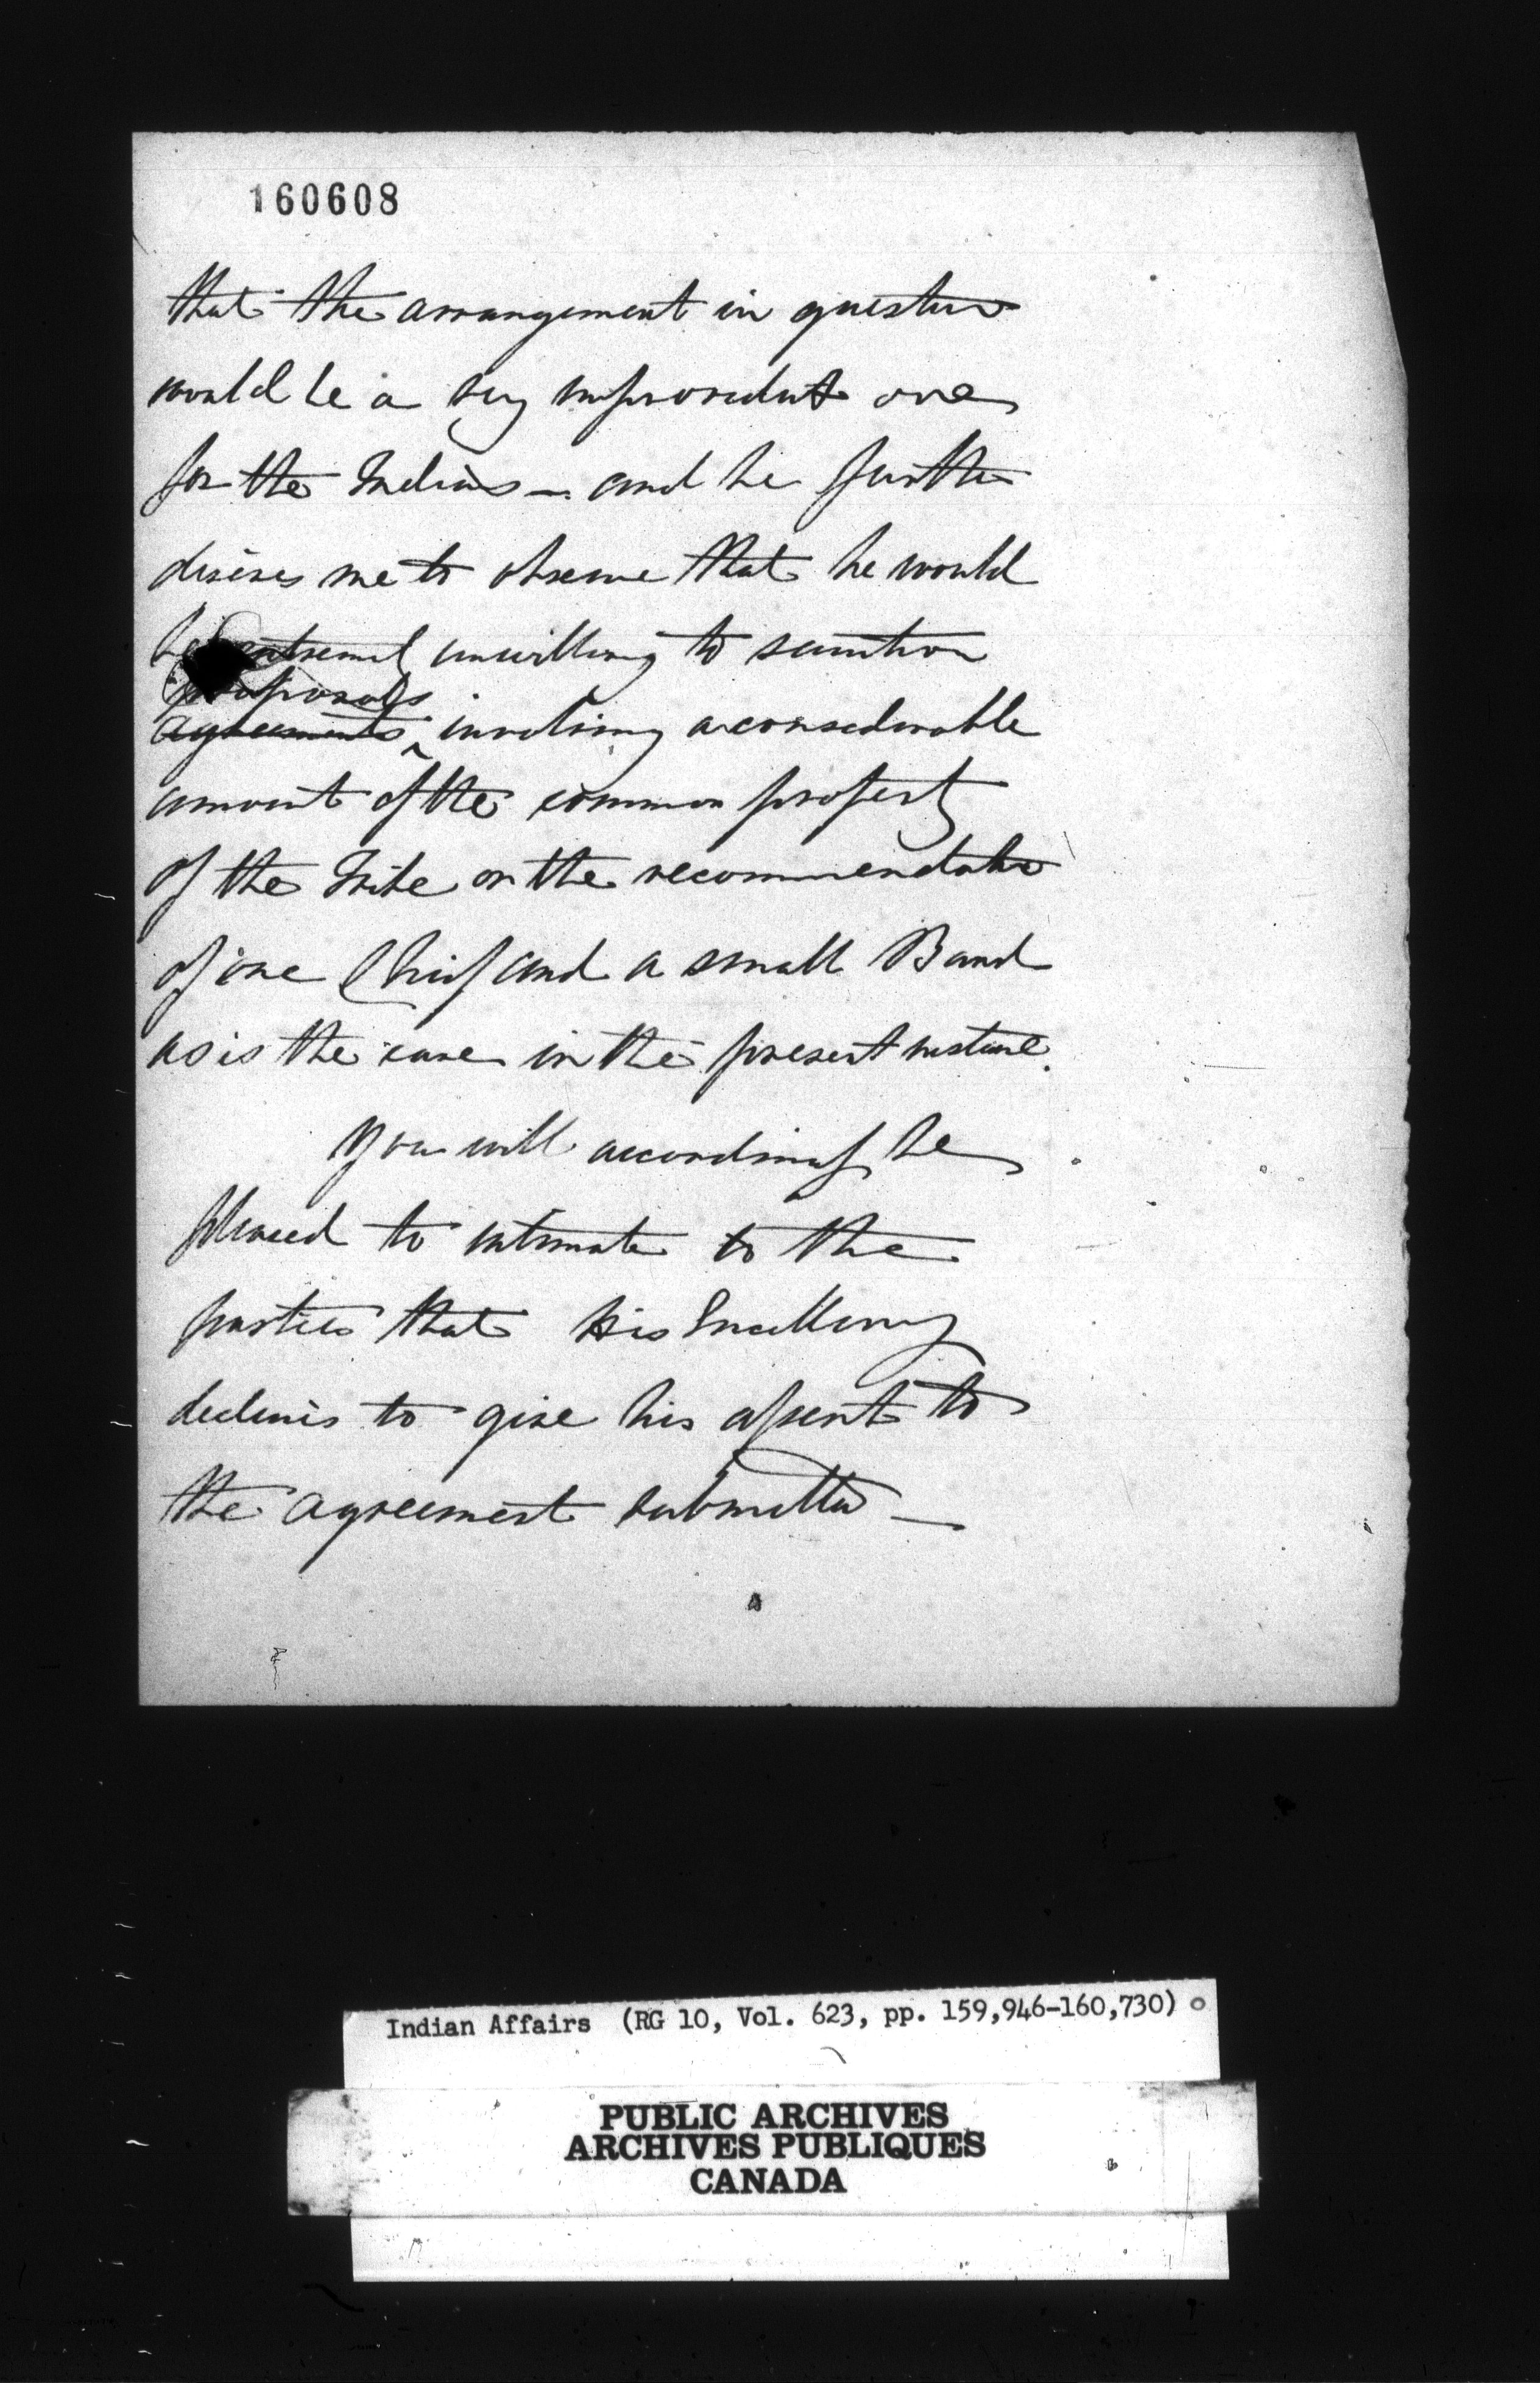 160608
that the arrangement in question
would be a very improvident one
for the Indians — and he further
desires me to observe that he would
be extremely unwilling to sanction
proposals
agreements involving a considerable
amount of the common property
of the Tribe on the recommendation
of one Chief and a small Band
as is the case in the present instance.
You will accordingly be
pleased to intimate to the
parties that His Excellency
declines to give his assent to
the agreement submitted —
Indian Affairs (RG 10, Vol. 623, pp. 159,946-160,730)
PUBLIC ARCHIVES
ARCHIVES PUBLIQUES
CANADA